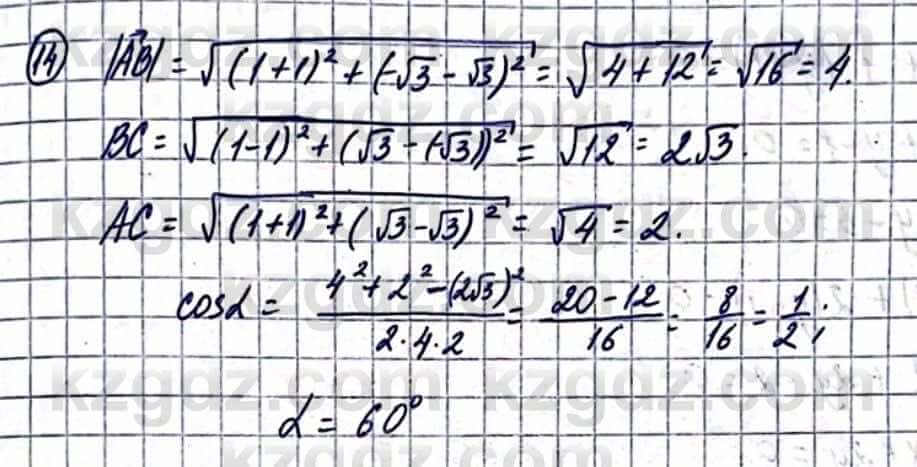 14 |AB| = √((1+1)² + (-√3 - √3)²) = √(4+12) = √16 = 4.
BC = √((1-1)² + (√3 - (-√3))²) = √12 = 2√3.
AC = √((1+1)² + (√3-√3)²) = √4 = 2.
cosα = (4² + 2² - (2√3)²)/(2·4·2) = (20-12)/16 = 8/16 = 1/2;
α = 60°
kzgdz.com kzgdz.com
kzgdz.com kzgdz.com
kzgdz.com kzgdz.com